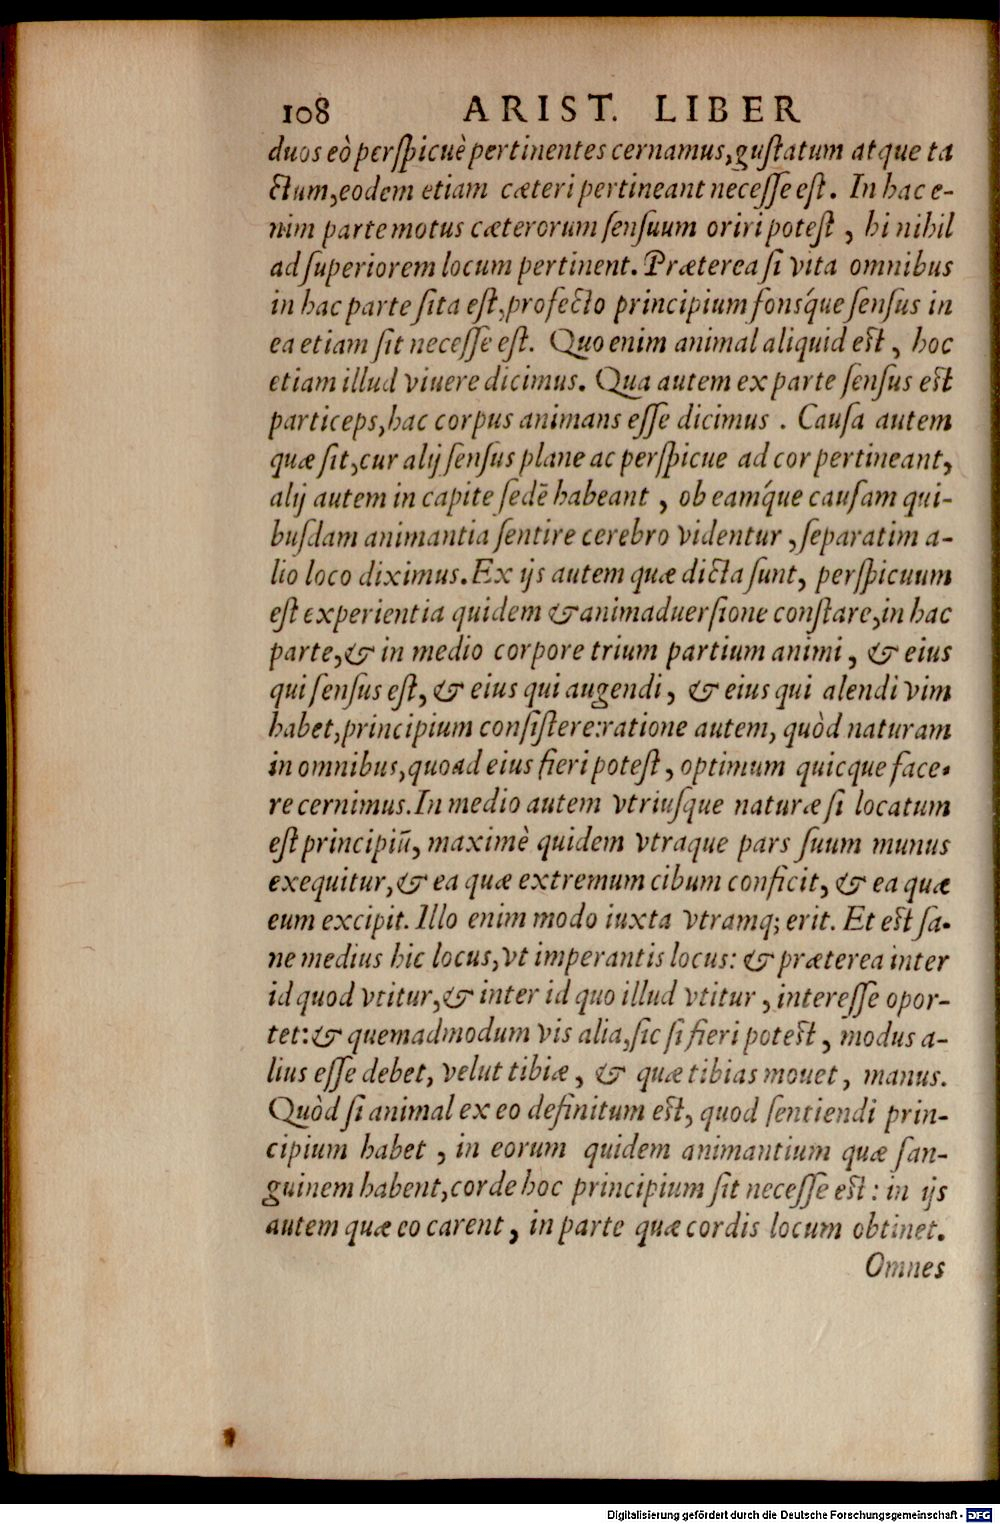 108 ARIST. LIBER
duos eò perſpicuè pertinentes cernamus, guſtatum atque ta
ctum, eodem etiam cæteri pertineant neceſſe eſt. In hac e-
nim parte motus cæterorum ſenſuum oriri poteſt, hi nihil
ad ſuperiorem locum pertinent. Præterea ſi vita omnibus
in hac parte ſita eſt, profecto principium fonsq́ue ſenſus in
ea etiam ſit neceſſe eſt. Quo enim animal aliquid eſt, hoc
etiam illud viuere dicimus. Qua autem ex parte ſenſus eſt
particeps, hac corpus animans eſſe dicimus. Cauſa autem
quæ ſit, cur alij ſenſus plane ac perſpicue ad cor pertineant,
alij autem in capite ſedē habeant, ob eamq́ue cauſam qui-
buſdam animantia ſentire cerebro videntur, ſeparatim a-
lio loco diximus. Ex ijs autem quæ dicta ſunt, perſpicuum
eſt experientia quidem & animaduerſione conſtare, in hac
parte, & in medio corpore trium partium animi, & eius
qui ſenſus eſt, & eius qui augendi, & eius qui alendi vim
habet, principium conſiſtere: ratione autem, quòd naturam
in omnibus, quoad eius fieri poteſt, optimum quicque face-
re cernimus. In medio autem vtriuſque naturæ ſi locatum
eſt principiū, maximè quidem vtraque pars ſuum munus
exequitur, & ea quæ extremum cibum conficit, & ea quæ
eum excipit. Illo enim modo iuxta vtramq; erit. Et eſt ſa-
ne medius hic locus, vt imperantis locus: & præterea inter
id quod vtitur, & inter id quo illud vtitur, intereſſe opor-
tet: & quemadmodum vis alia, ſic ſi fieri poteſt, modus a-
lius eſſe debet, velut tibiæ, & quæ tibias mouet, manus.
Quòd ſi animal ex eo definitum eſt, quod ſentiendi prin-
cipium habet, in eorum quidem animantium quæ ſan-
guinem habent, corde hoc principium ſit neceſſe eſt: in ijs
autem quæ eo carent, in parte quæ cordis locum obtinet.
Omnes
Digitalisierung gefördert durch die Deutsche Forschungsgemeinschaft - DFG